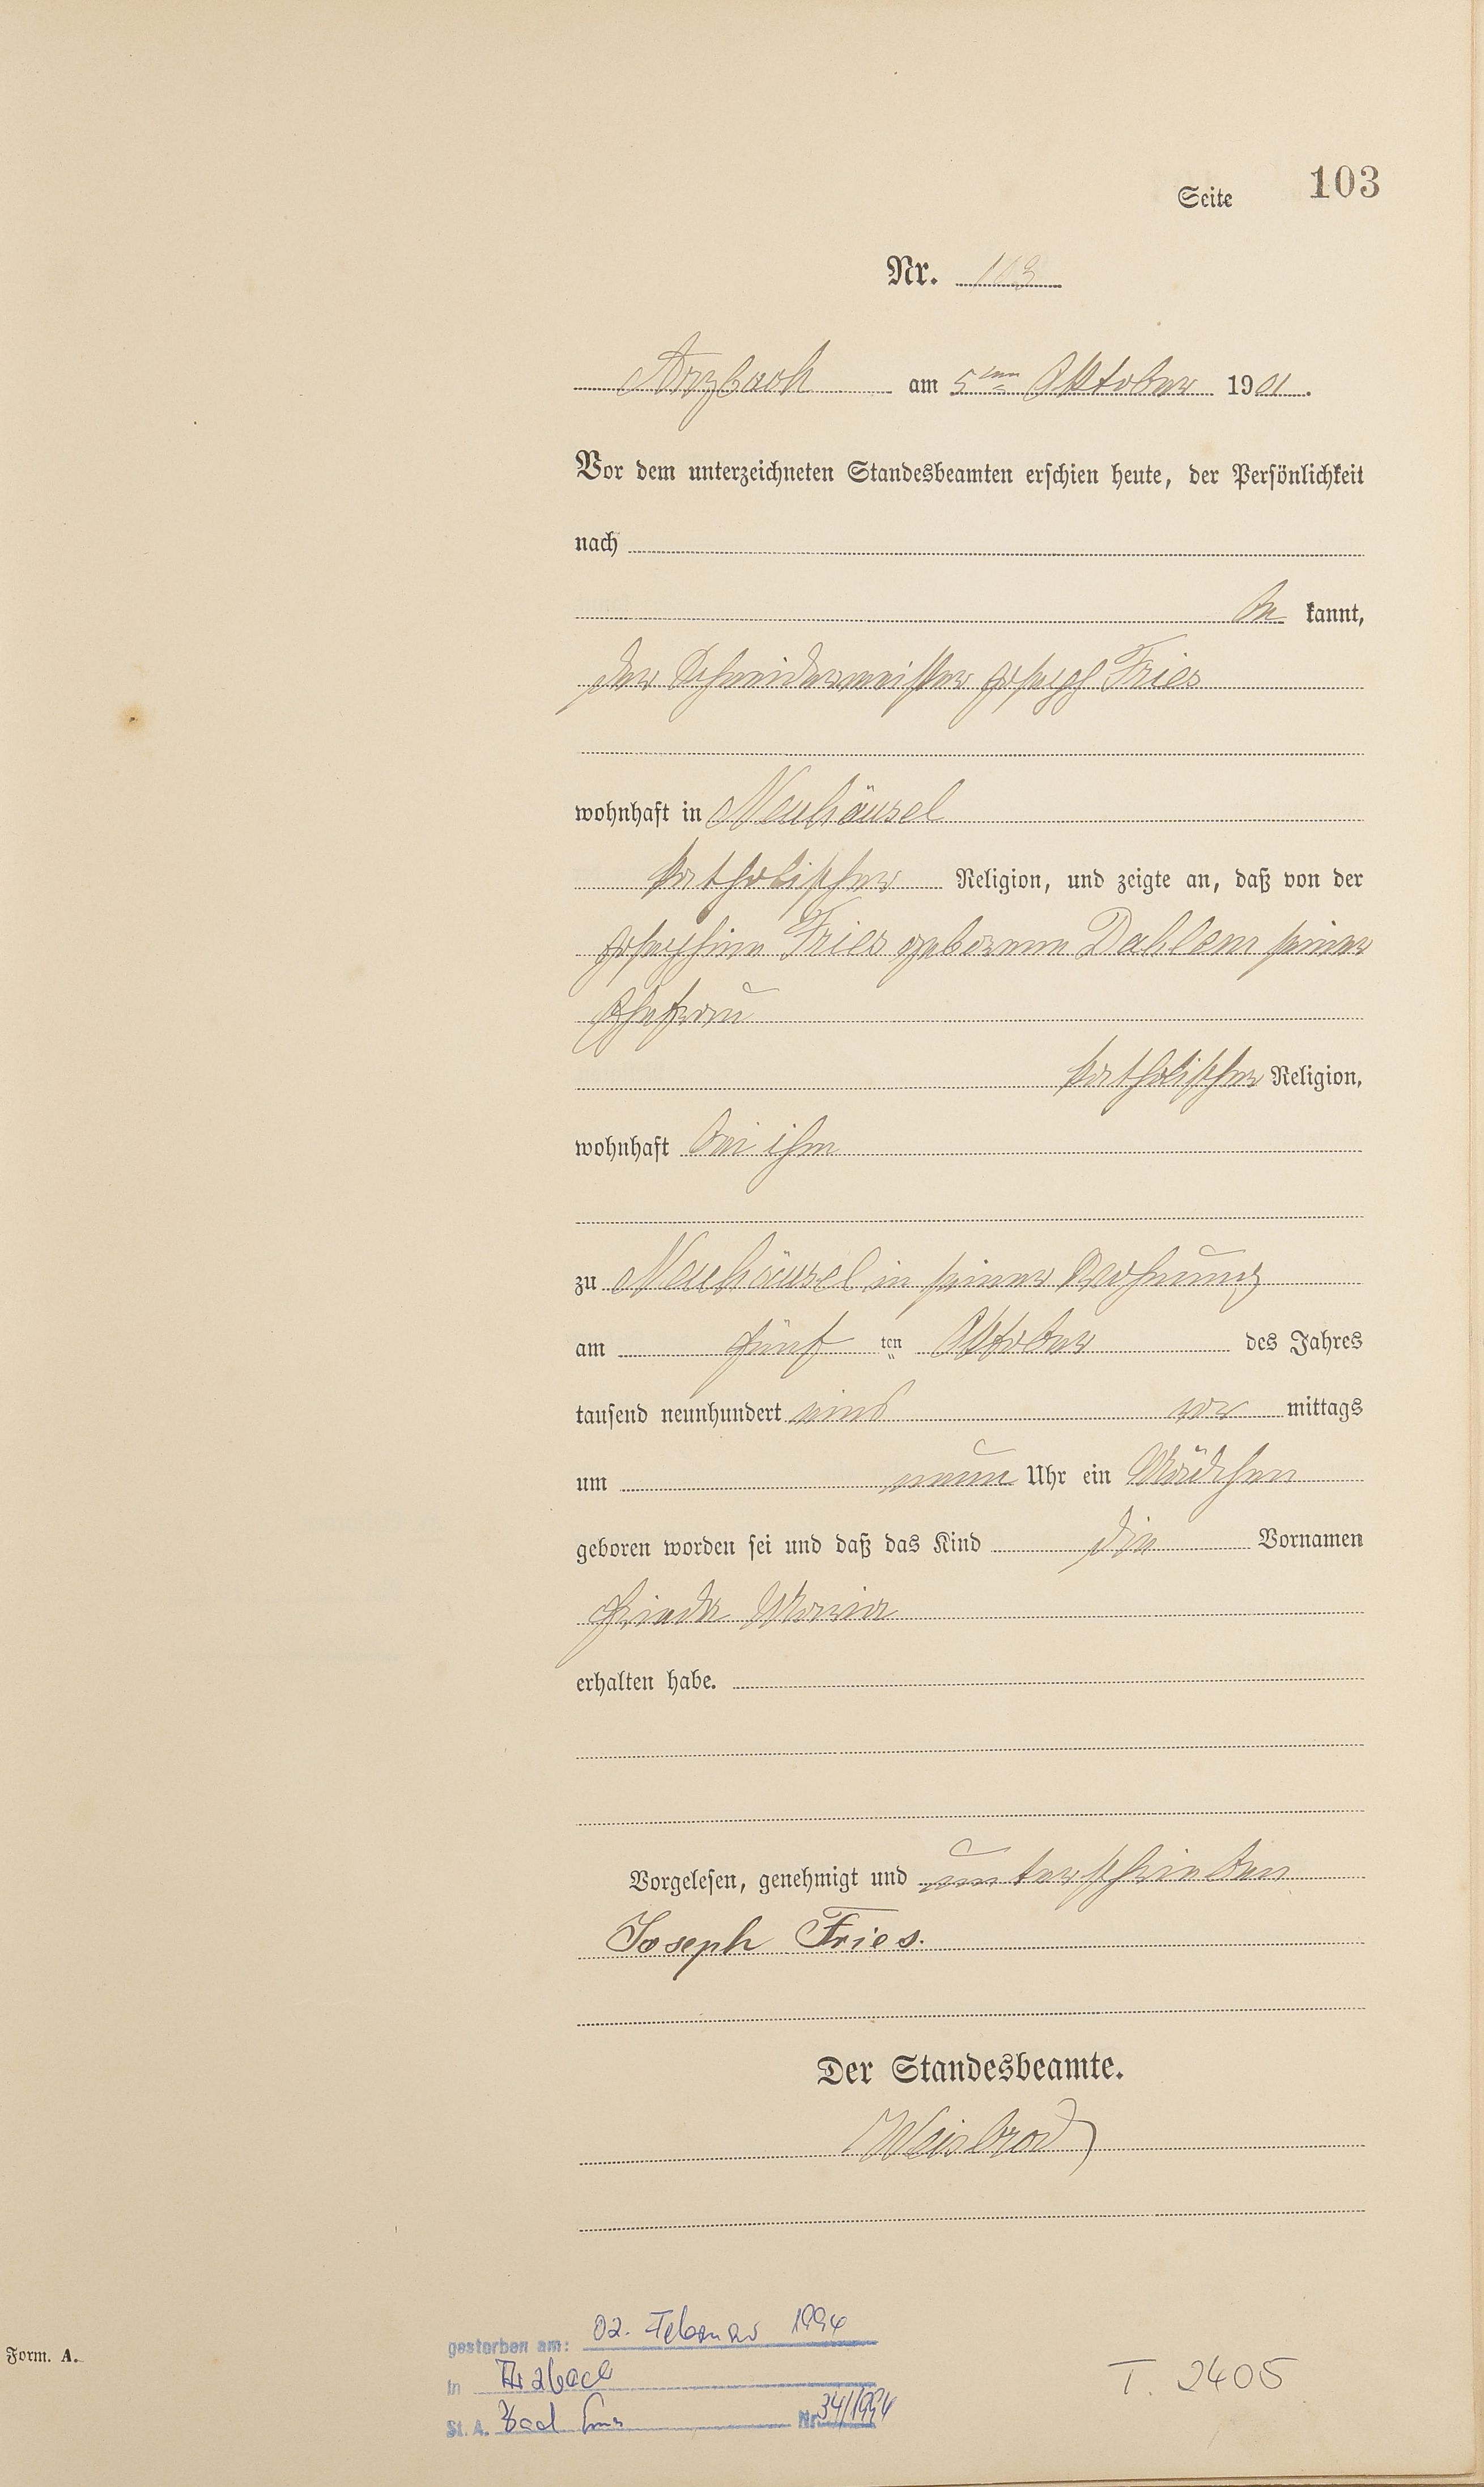 Seite 103
Nr. 103
Arzbach am 5ten Oktober 1901.
Vor dem unterzeichneten Standesbeamten erschien heute, der Persönlichkeit
nach
be kannt,
der Schneidermeister Joseph Fries
wohnhaft in Neuhäusel
katholischer Religion, und zeigte an, daß von der
Josephine Fries geborenen Dahlem seiner
Ehefrau
katholischer Religion,
wohnhaft bei ihm
zu Neuhäusel in seiner Wohnung
am fünf ten Oktober des Jahres
tausend neunhundert eins vor mittags
um neun Uhr ein Mädchen
geboren worden sei und daß das Kind die Vornamen
Frieda Maria
erhalten habe.
Vorgelesen, genehmigt und unterschrieben
Joseph Fries.
Der Standesbeamte.
Weisbrod
gestorben am: 02. Februar 1994
in Arzbach
St. A. Bad Ems Nr. 34/1994
Form. A.
T. 2405